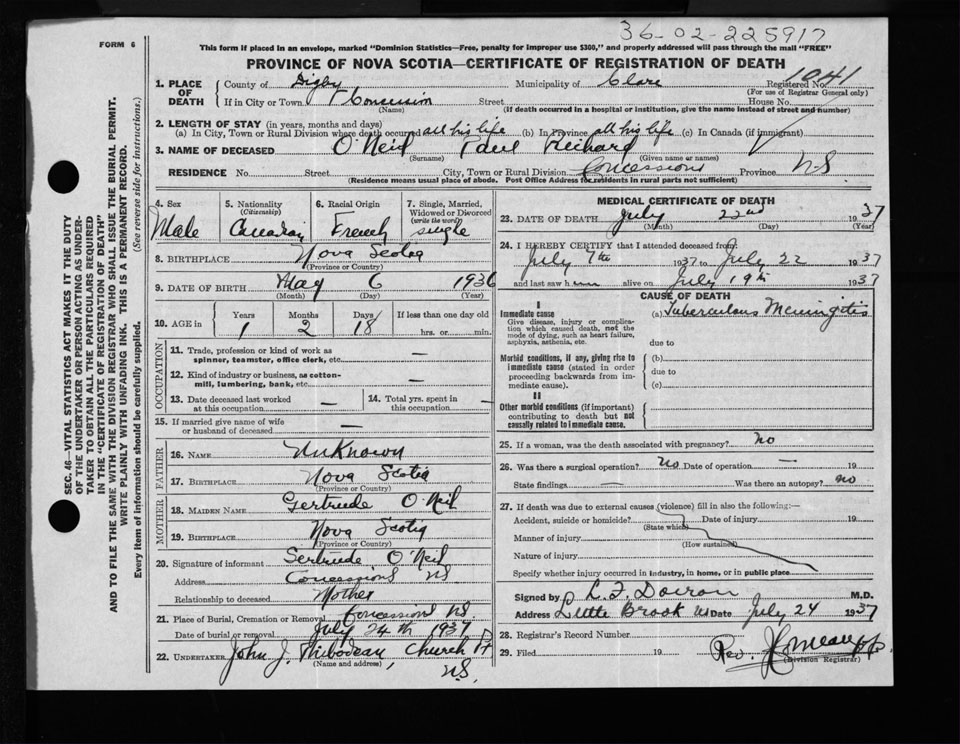 36-02-225917
FORM 6
This form if placed in an envelope, marked "Dominion Statistics—Free, penalty for improper use $300," and properly addressed will pass through the mail "FREE"
PROVINCE OF NOVA SCOTIA—CERTIFICATE OF REGISTRATION OF DEATH
1. PLACE OF DEATH
County of Digby Municipality of Clare Registered No. 1041
(For use of Registrar General only)
If in City or Town Street House No.
(Name) (If death occurred in a hospital or institution, give the name instead of street and number)
2. LENGTH OF STAY (in years, months and days)
(a) In City, Town or Rural Division where death occurred all his life (b) In Province all his life (c) In Canada (if immigrant)
3. NAME OF DECEASED O'Neil Paul Richard
(Surname) (Given name or names)
RESIDENCE No. Street City, Town or Rural Division Concessions Province N.S
(Residence means usual place of abode. Post Office Address for residents in rural parts not sufficient)
4. Sex Male
5. Nationality (Citizenship) Canadian
6. Racial Origin French
7. Single, Married, Widowed or Divorced (write the word) single
8. BIRTHPLACE Nova Scotia
(Province or Country)
9. DATE OF BIRTH May 6 1936
(Month) (Day) (Year)
10. AGE in Years Months Days If less than one day old
1 2 18 hrs. or min.
OCCUPATION
11. Trade, profession or kind of work as spinner, teamster, office clerk, etc. —
12. Kind of industry or business, as cotton-mill, lumbering, bank, etc. —
13. Date deceased last worked at this occupation —
14. Total yrs. spent in this occupation —
15. If married give name of wife or husband of deceased —
FATHER
16. NAME Unknown
17. BIRTHPLACE Nova Scotia
(Province or Country)
MOTHER
18. MAIDEN NAME Gertrude O'Neil
19. BIRTHPLACE Nova Scotia
(Province or Country)
20. Signature of informant Gertrude O'Neil
Address Concessions NS
Relationship to deceased Mother
21. Place of Burial, Cremation or Removal Concessions NS
Date of burial or removal July 24th 1937
22. UNDERTAKER John J. Thibodeau Church Pt
(Name and address)
N.S.
MEDICAL CERTIFICATE OF DEATH
23. DATE OF DEATH July 22nd 1937
(Month) (Day) (Year)
24. I HEREBY CERTIFY that I attended deceased from:
July 7th 1937 to July 22 1937
and last saw h alive on July 19th 1937
CAUSE OF DEATH
I
Immediate cause
Give disease, injury or complication which caused death, not the mode of dying, such as heart failure, asphyxia, asthenia, etc.
(a) Tuberculous Meningitis
due to
Morbid conditions, if any, giving rise to immediate cause (stated in order proceeding backwards from immediate cause).
(b)
due to
(c)
II
Other morbid conditions (if important) contributing to death but not causally related to immediate cause.
25. If a woman, was the death associated with pregnancy? no
26. Was there a surgical operation? no Date of operation — 19
State findings — Was there an autopsy? no
27. If death was due to external causes (violence) fill in also the following:—
Accident, suicide or homicide? Date of injury 19
(State which)
Manner of injury
(How sustained)
Nature of injury
Specify whether injury occurred in industry, in home, or in public place
Signed by L. F. Doiron M.D.
Address Little Brook NS Date July 24 1937
28. Registrar's Record Number
29. Filed 19 Rev.
(Division Registrar)
SEC. 46—VITAL STATISTICS ACT MAKES IT THE DUTY
OF THE UNDERTAKER OR PERSON ACTING AS UNDER-
TAKER TO OBTAIN ALL THE PARTICULARS REQUIRED
IN THE "CERTIFICATE OF REGISTRATION OF DEATH"
AND TO FILE THE SAME WITH THE DIVISION REGISTRAR WHO SHALL ISSUE THE BURIAL PERMIT.
WRITE PLAINLY WITH UNFADING INK. THIS IS A PERMANENT RECORD.
Every item of information should be carefully supplied. (See reverse side for instructions.)